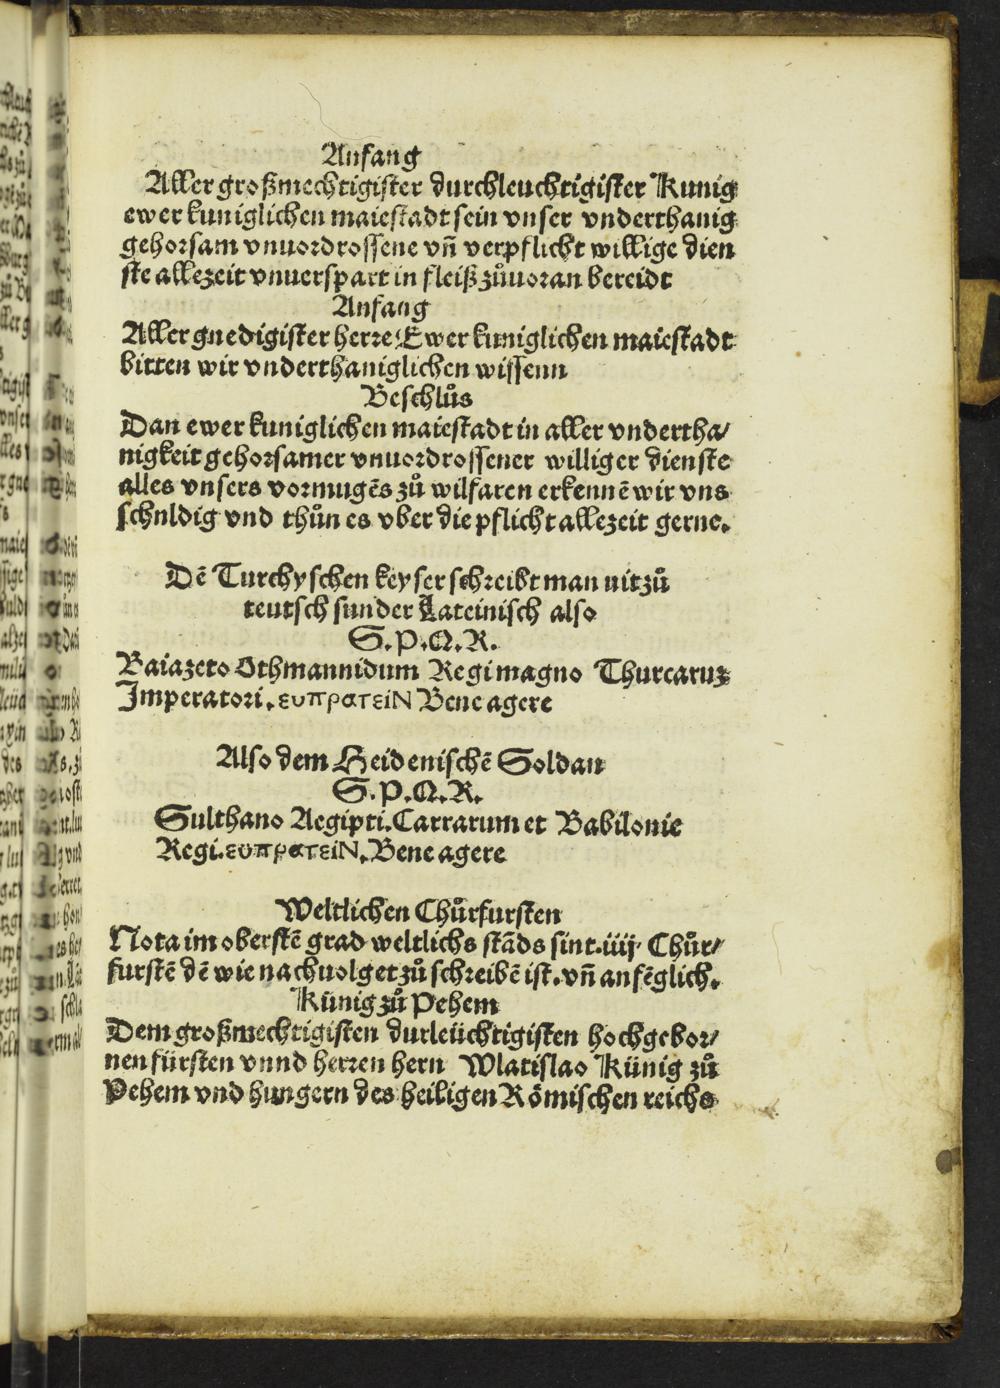 Anfang
Aller großmechtigister durchleuchtigister Kunig
ewer kuniglichen maiestadt sein vnser vnderthanig
gehorsam vnuordrossene vn̄ verpflicht willige dien
ste allezeit vnuerspart in fleiß zůuoran bereidt
Anfang
Aller gnedigister herre Ewer kuniglichen maiestadt
bitten wir vnderthaniglichen wissenn
Beschlůs
Dan ewer kuniglichen maiestadt in aller vndertha/
nigkeit gehorsamer vnuordrossener williger dienste
alles vnsers vormugēs zů wilfaren erkennē wir vns
schnldig vnd thůn es vber die pflicht allezeit gerne.
Dē Turchyschen keyser schreibt man nit zů
teutsch sunder Lateinisch also
S.P.Q.R.
Baiazeto Othmannidum Regi magno Thurcaruꝫ
Imperatori. ευπρατειΝ Bene agere
Also dem Heidenischē Soldan
S.P.Q.R.
Sulthano Aegipti. Carrarum et Babilonie
Regi. ευπρατειΝ. Bene agere
Weltlichen Chůrfursten
Nota im oberstē grad weltlichs stāds sint .iiij. Chůr/
furstē dē wie nachuolget zů schreibē ist. vn̄ anfēglich.
Künig zů Pehem
Dem großmechtigisten durleüchtigisten hochgebor/
nen fürsten vnnd herren hern Wlatislao Künig zů
Pehem vnd hungern des heiligen Römischen reichs